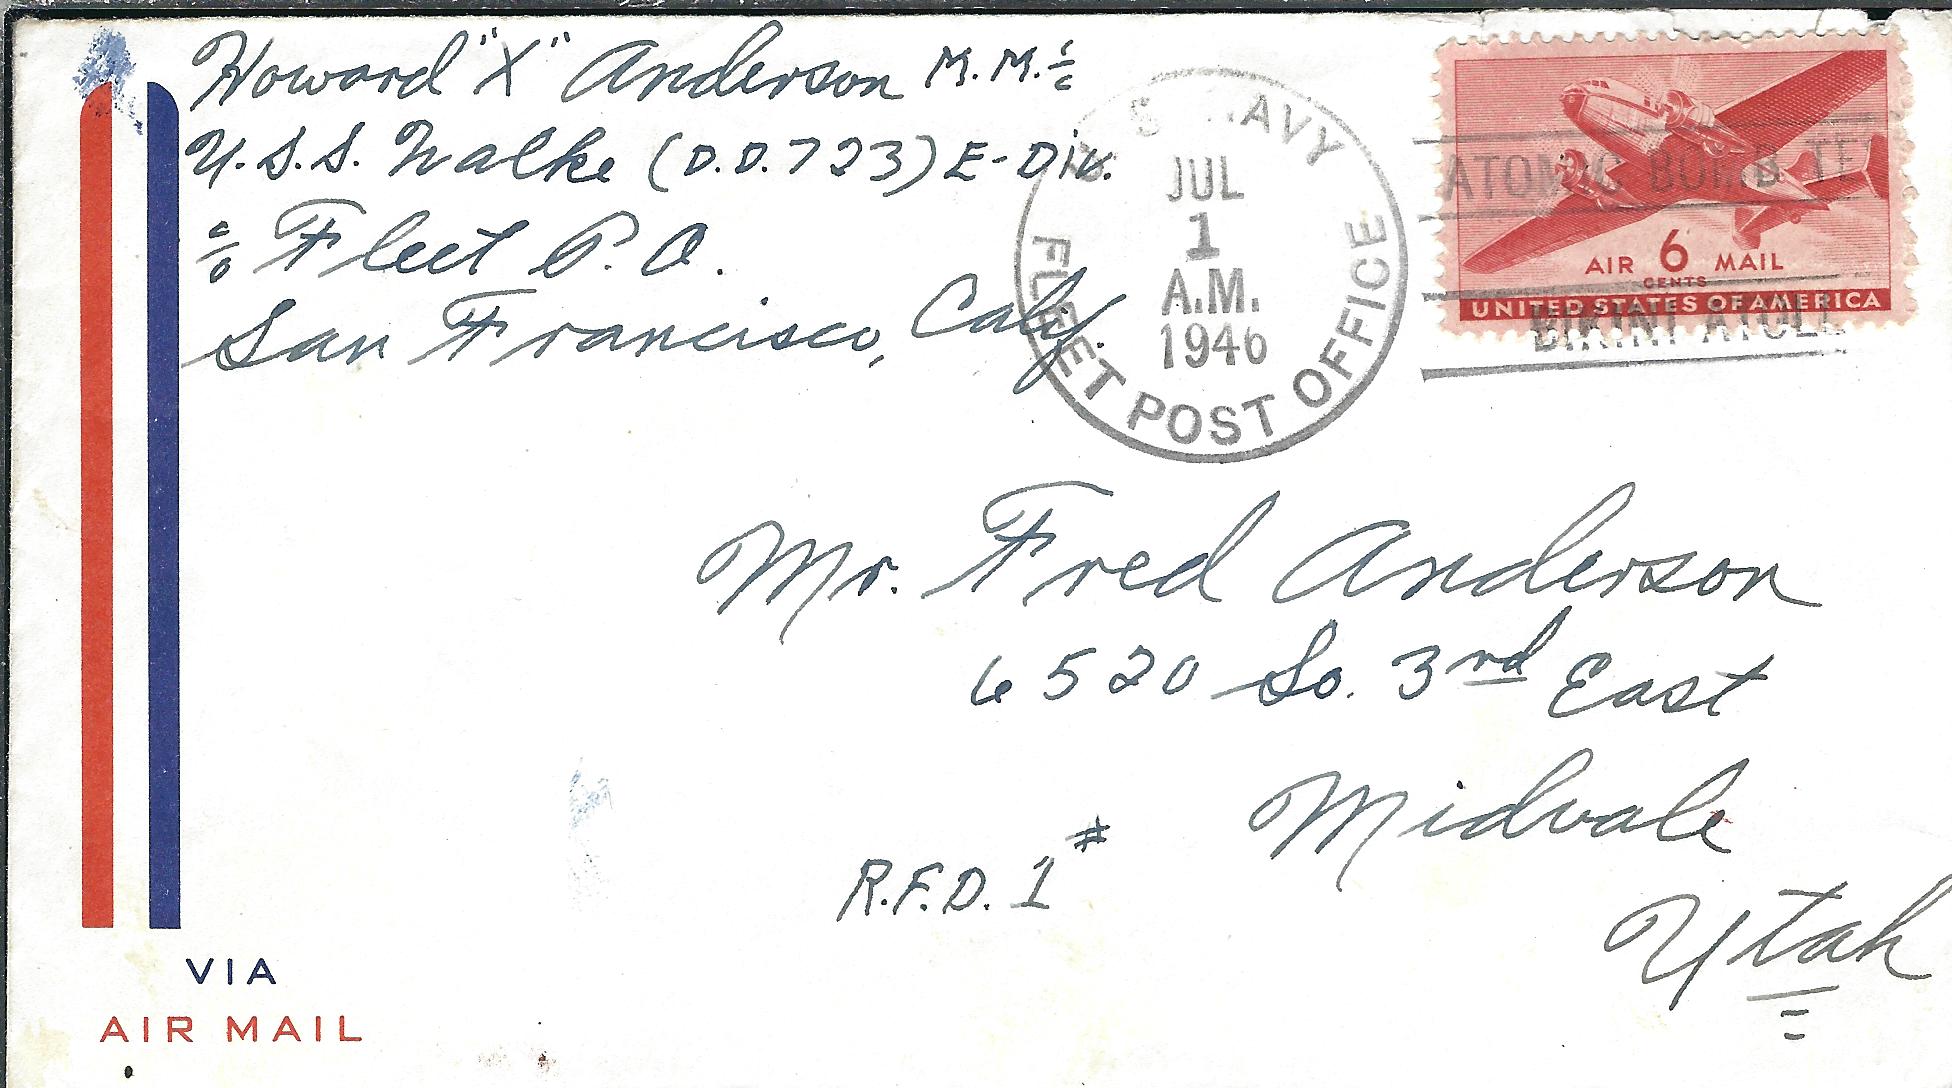 Howard "X" Anderson M.M. 1/c
U.S.S. Walke (D.D. 723) E-Div.
c/o Fleet P.O.
San Francisco, Calif.
U.S. NAVY
JUL
1
A.M.
1946
FLEET POST OFFICE
ATOMIC BOMB TE
BIKINI ATOLL
AIR 6 MAIL
CENTS
UNITED STATES OF AMERICA
Mr. Fred Anderson
6520 So. 3rd East
Midvale
R.F.D. 1#
Utah
VIA
AIR MAIL